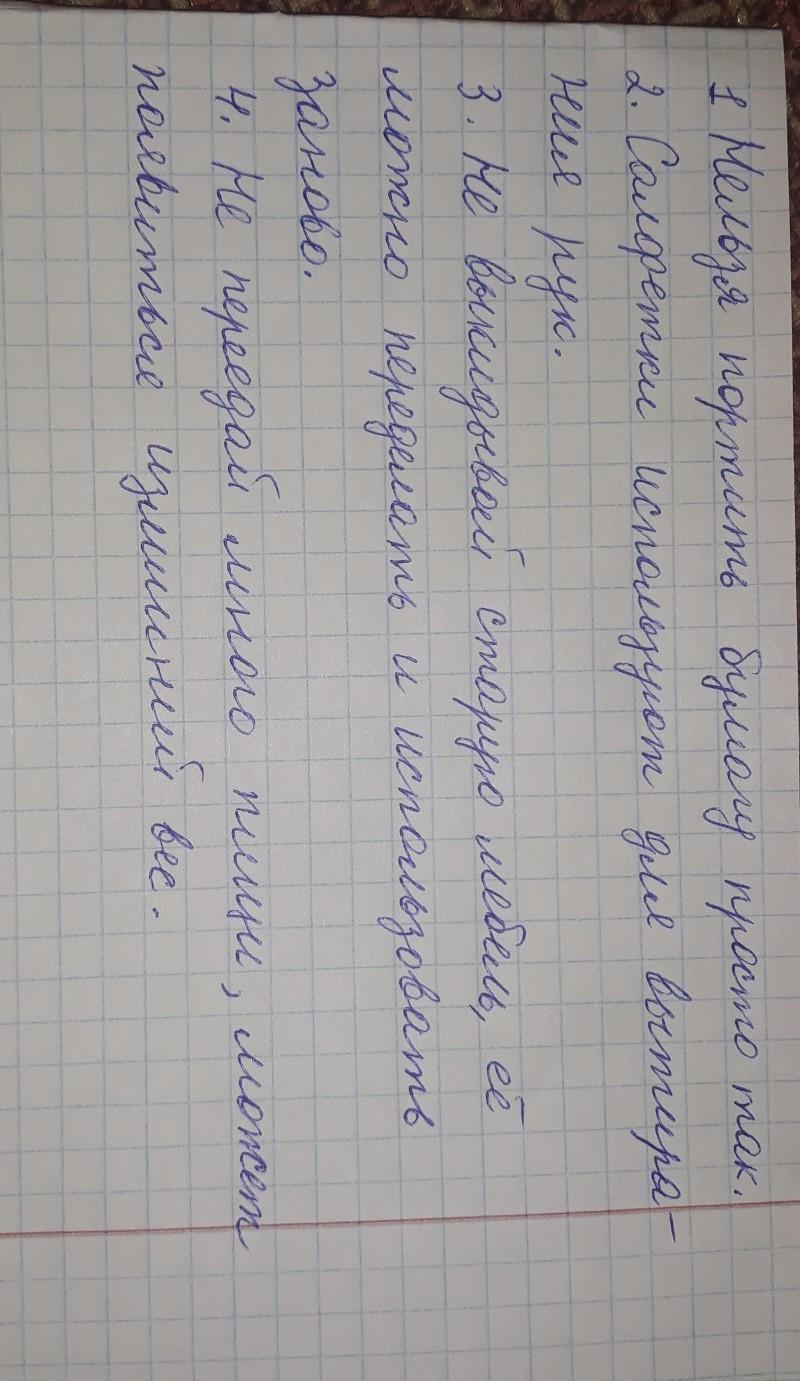 1 Нельзя портить бумагу просто так.
2. Салфетки используют для вытира-
ния рук.
3. Не выкидывай старую мебель, её
можно переделать и использовать
заново.
4. Не переедай много пищи, может
появиться излишний вес.